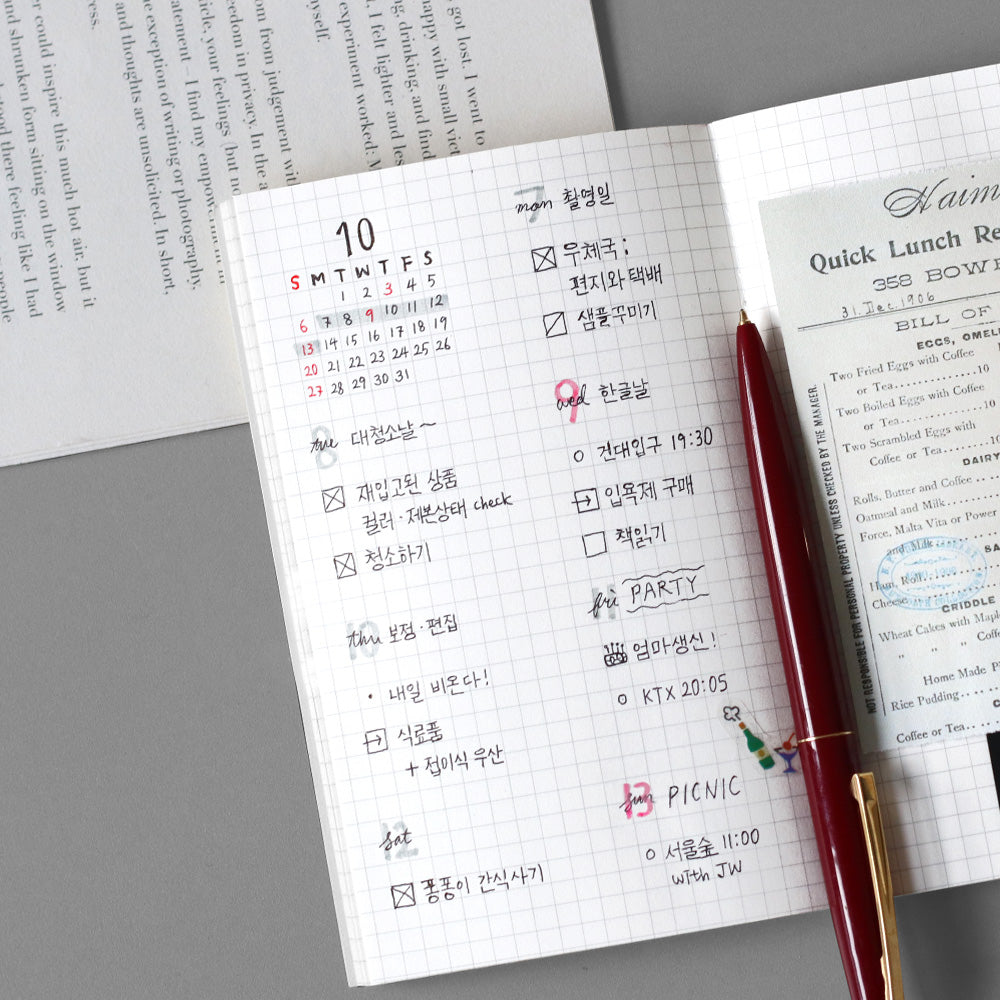 got lost. I went to
happy with small vict
ng, drinking, and find
, I felt lighter and les
experiment worked: M
myself.
om from judgement wi
eedom in privacy. In the a
icle, your feelings (but no
atement – I find my empow
e exception of writing or photography,
and thoughts are unsolicited. In short,
ress.
er could inspire this much hot air, but it
and shrunken form sitting on the window
stood there feeling like I had
people
10
S M T W T F S
1 2 3 4 5
6 7 8 9 10 11 12
13 14 15 16 17 18 19
20 21 22 23 24 25 26
27 28 29 30 31
8 tue 대청소날~
재입고된 상품
컬러·제본상태 check
청소하기
10 thu 보정·편집
· 내일 비온다!
식료품
+ 접이식 우산
12 sat
퐁퐁이 간식사기
7 mon 촬영일
우체국:
편지와 택배
샘플꾸미기
9 wed 한글날
○ 건대입구 19:30
입욕제 구매
책읽기
11 fri PARTY
엄마생신!
○ KTX 20:05
13 sun PICNIC
○ 서울숲 11:00
with JW
Haim
Quick Lunch Re
358 BOWE
31. Dec. 1906
BILL OF
EGGS, OMEL
Two Fried Eggs with Coffee
or Tea..............10
Two Boiled Eggs with Coffee
or Tea..............10
Two Scrambled Eggs with
Coffee or Tea..........10
DAIRY
Rolls, Butter and Coffee
Oatmeal and Milk
Force, Malta Vita or Power
and Milk
SA
Ham Roll
Cheese
CRIDDLE
Wheat Cakes with Maple
" " " Coff
Home Made P
Rice Pudding
Coffee or Tea
NOT RESPONSIBLE FOR PERSONAL PROPERTY UNLESS CHECKED BY THE MANAGER.